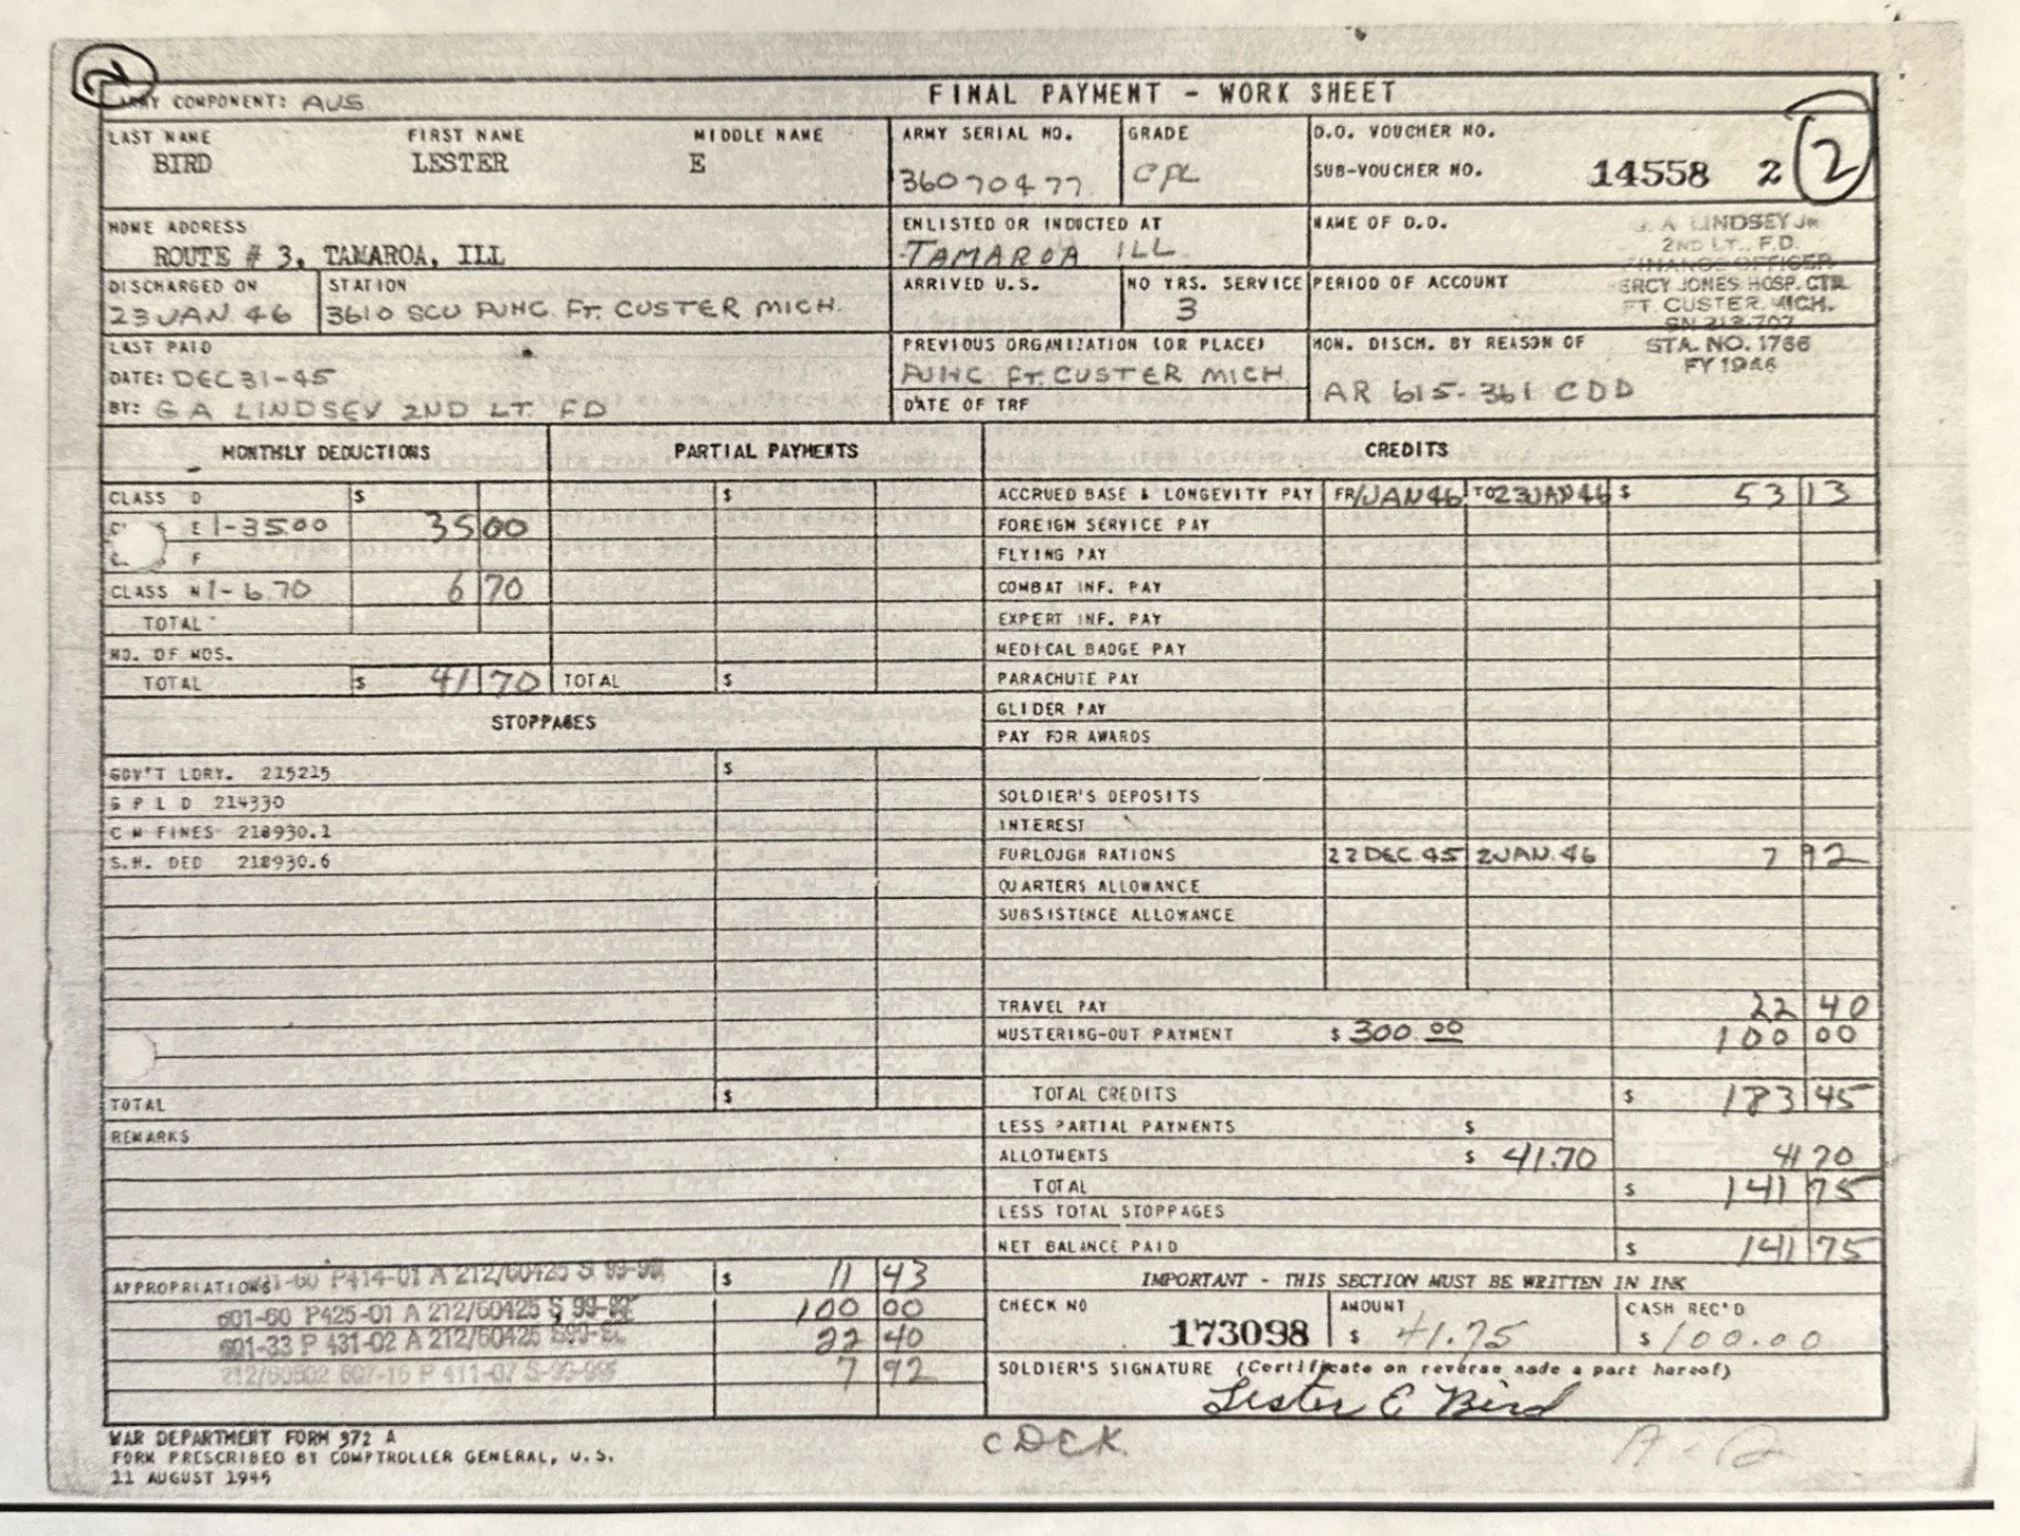 2
ARMY COMPONENT: AUS
FINAL PAYMENT - WORK SHEET
LAST NAME FIRST NAME MIDDLE NAME
BIRD LESTER E
ARMY SERIAL NO.
36070477
GRADE
CPL
D.O. VOUCHER NO.
SUB-VOUCHER NO. 14558 2
2
HOME ADDRESS
ROUTE # 3, TAMAROA, ILL
ENLISTED OR INDUCTED AT
TAMAROA ILL
NAME OF D.O.
A LINDSEY JR
2ND LT., F.D.
FINANCE OFFICER
PERCY JONES HOSP. CTR.
FT. CUSTER, MICH.
SN 213-707
STA. NO. 1766
FY 1946
DISCHARGED ON
23 JAN 46
STATION
3610 SCU PJHC FT. CUSTER MICH.
ARRIVED U.S.
NO YRS. SERVICE
3
PERIOD OF ACCOUNT
LAST PAID
DATE: DEC 31-45
BY: G A LINDSEY 2ND LT. FD
PREVIOUS ORGANIZATION (OR PLACE)
PJHC FT. CUSTER MICH
DATE OF TRF
HON. DISCH. BY REASON OF
AR 615-361 CDD
MONTHLY DEDUCTIONS PARTIAL PAYMENTS CREDITS
CLASS D $ $
E 1-35.00 35 00
F
CLASS N 1-6.70 6 70
TOTAL
NO. OF MOS.
TOTAL $ 41 70 TOTAL $
ACCRUED BASE & LONGEVITY PAY FR 1 JAN 46 TO 23 JAN 46 $ 53 13
FOREIGN SERVICE PAY
FLYING PAY
COMBAT INF. PAY
EXPERT INF. PAY
MEDICAL BADGE PAY
PARACHUTE PAY
GLIDER PAY
PAY FOR AWARDS
STOPPAGES
GOV'T LDRY. 215215 $
S P L D 214330
C M FINES 218930.1
S.H. DED 218930.6
TOTAL $
REMARKS
SOLDIER'S DEPOSITS
INTEREST
FURLOUGH RATIONS 22 DEC. 45 2 JAN. 46 7 92
QUARTERS ALLOWANCE
SUBSISTENCE ALLOWANCE
TRAVEL PAY 22 40
MUSTERING-OUT PAYMENT $ 300.00 100 00
TOTAL CREDITS $ 183 45
LESS PARTIAL PAYMENTS $
ALLOTMENTS $ 41.70 41 70
TOTAL $ 141 75
LESS TOTAL STOPPAGES
NET BALANCE PAID $ 141 75
APPROPRIATIONS P414-01 A 212/60425 S 99-99 $ 11 43
601-60 P425-01 A 212/60425 S 99-99 100 00
601-33 P 431-02 A 212/60425 S99- 22 40
212/60502 607-16 P 411-07 S-99-999 7 92
IMPORTANT - THIS SECTION MUST BE WRITTEN IN INK
CHECK NO
173098
AMOUNT
$ 41.75
CASH REC'D
$ 100.00
SOLDIER'S SIGNATURE (Certificate on reverse made a part hereof)
Lester E Bird
WAR DEPARTMENT FORM 372 A
FORM PRESCRIBED BY COMPTROLLER GENERAL, U.S.
11 AUGUST 1945
CDCK
A-2